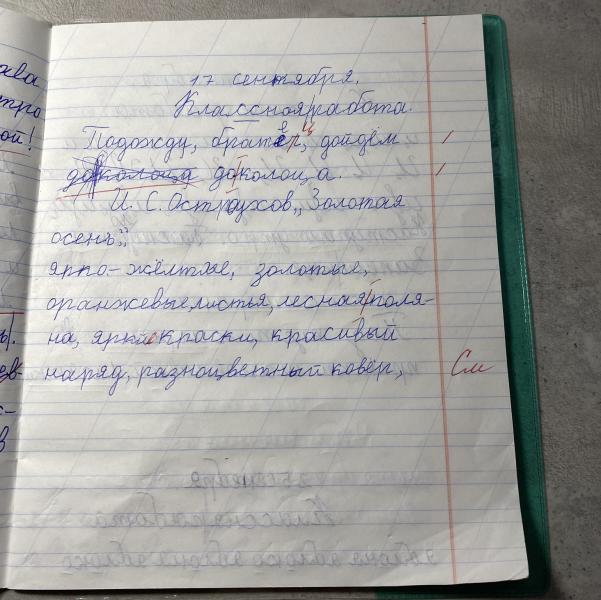 17 сентября.
Классная работа.
Подожду, братец, дойдём
до колоца.
И. С. Остроухов „Золотая
осень".
ярко-жёлтые, золотые,
оранжевые листья, лесная поля-
на, яркие краски, красивый
наряд, разноцветный ковёр,
См